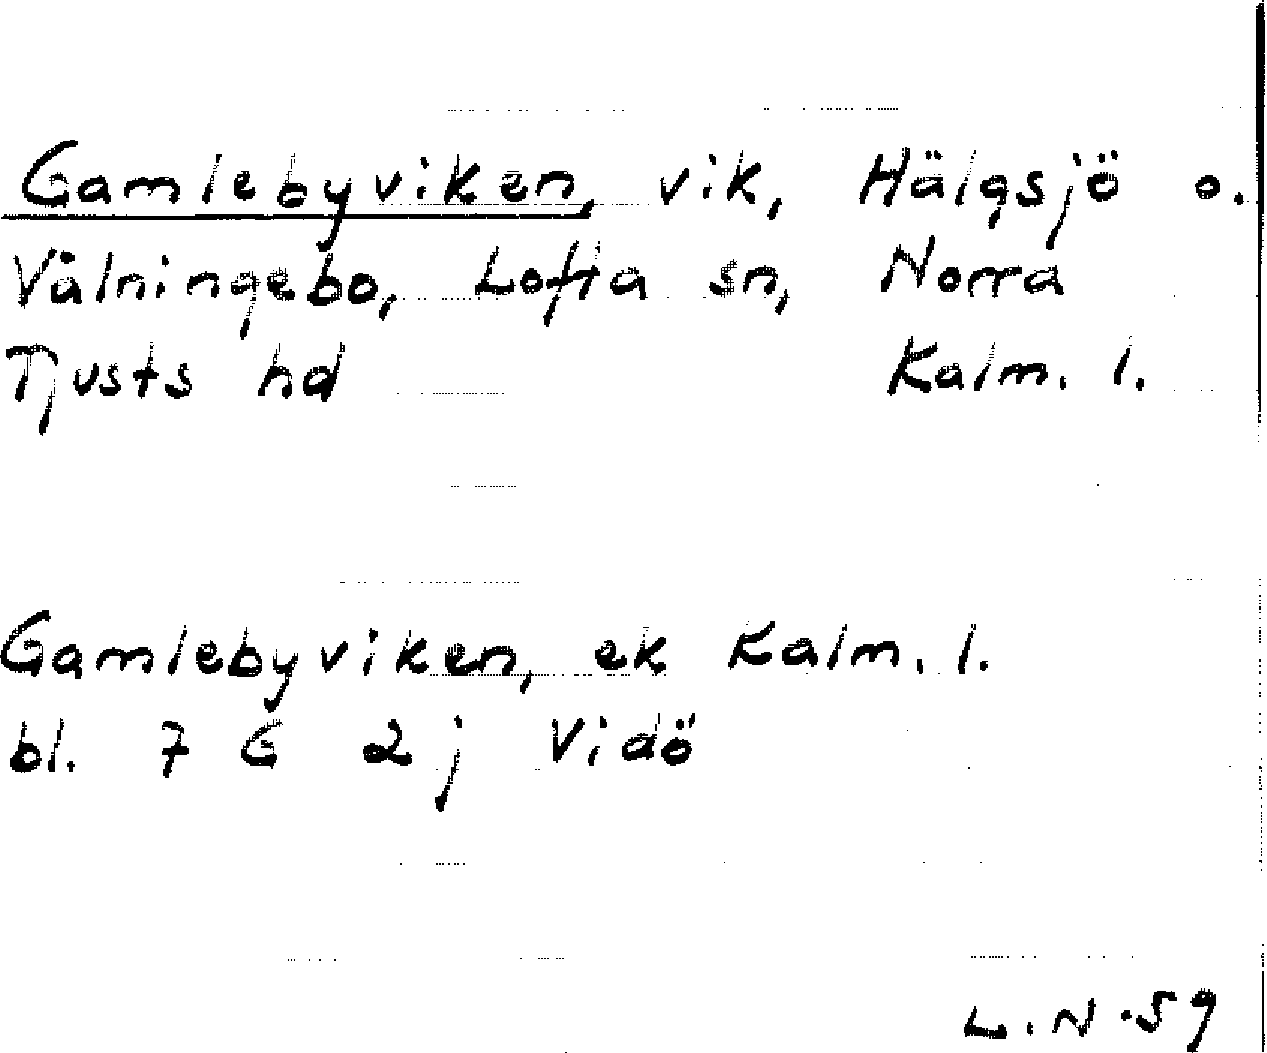 Gamlebyviken, vik, Hälgsjö o.
Vålningebo, Lofta sn, Norra
Tjusts hd Kalm. l.
Gamlebyviken, ek Kalm. l.
bl. 7 G 2 j Vidö
L.N.59